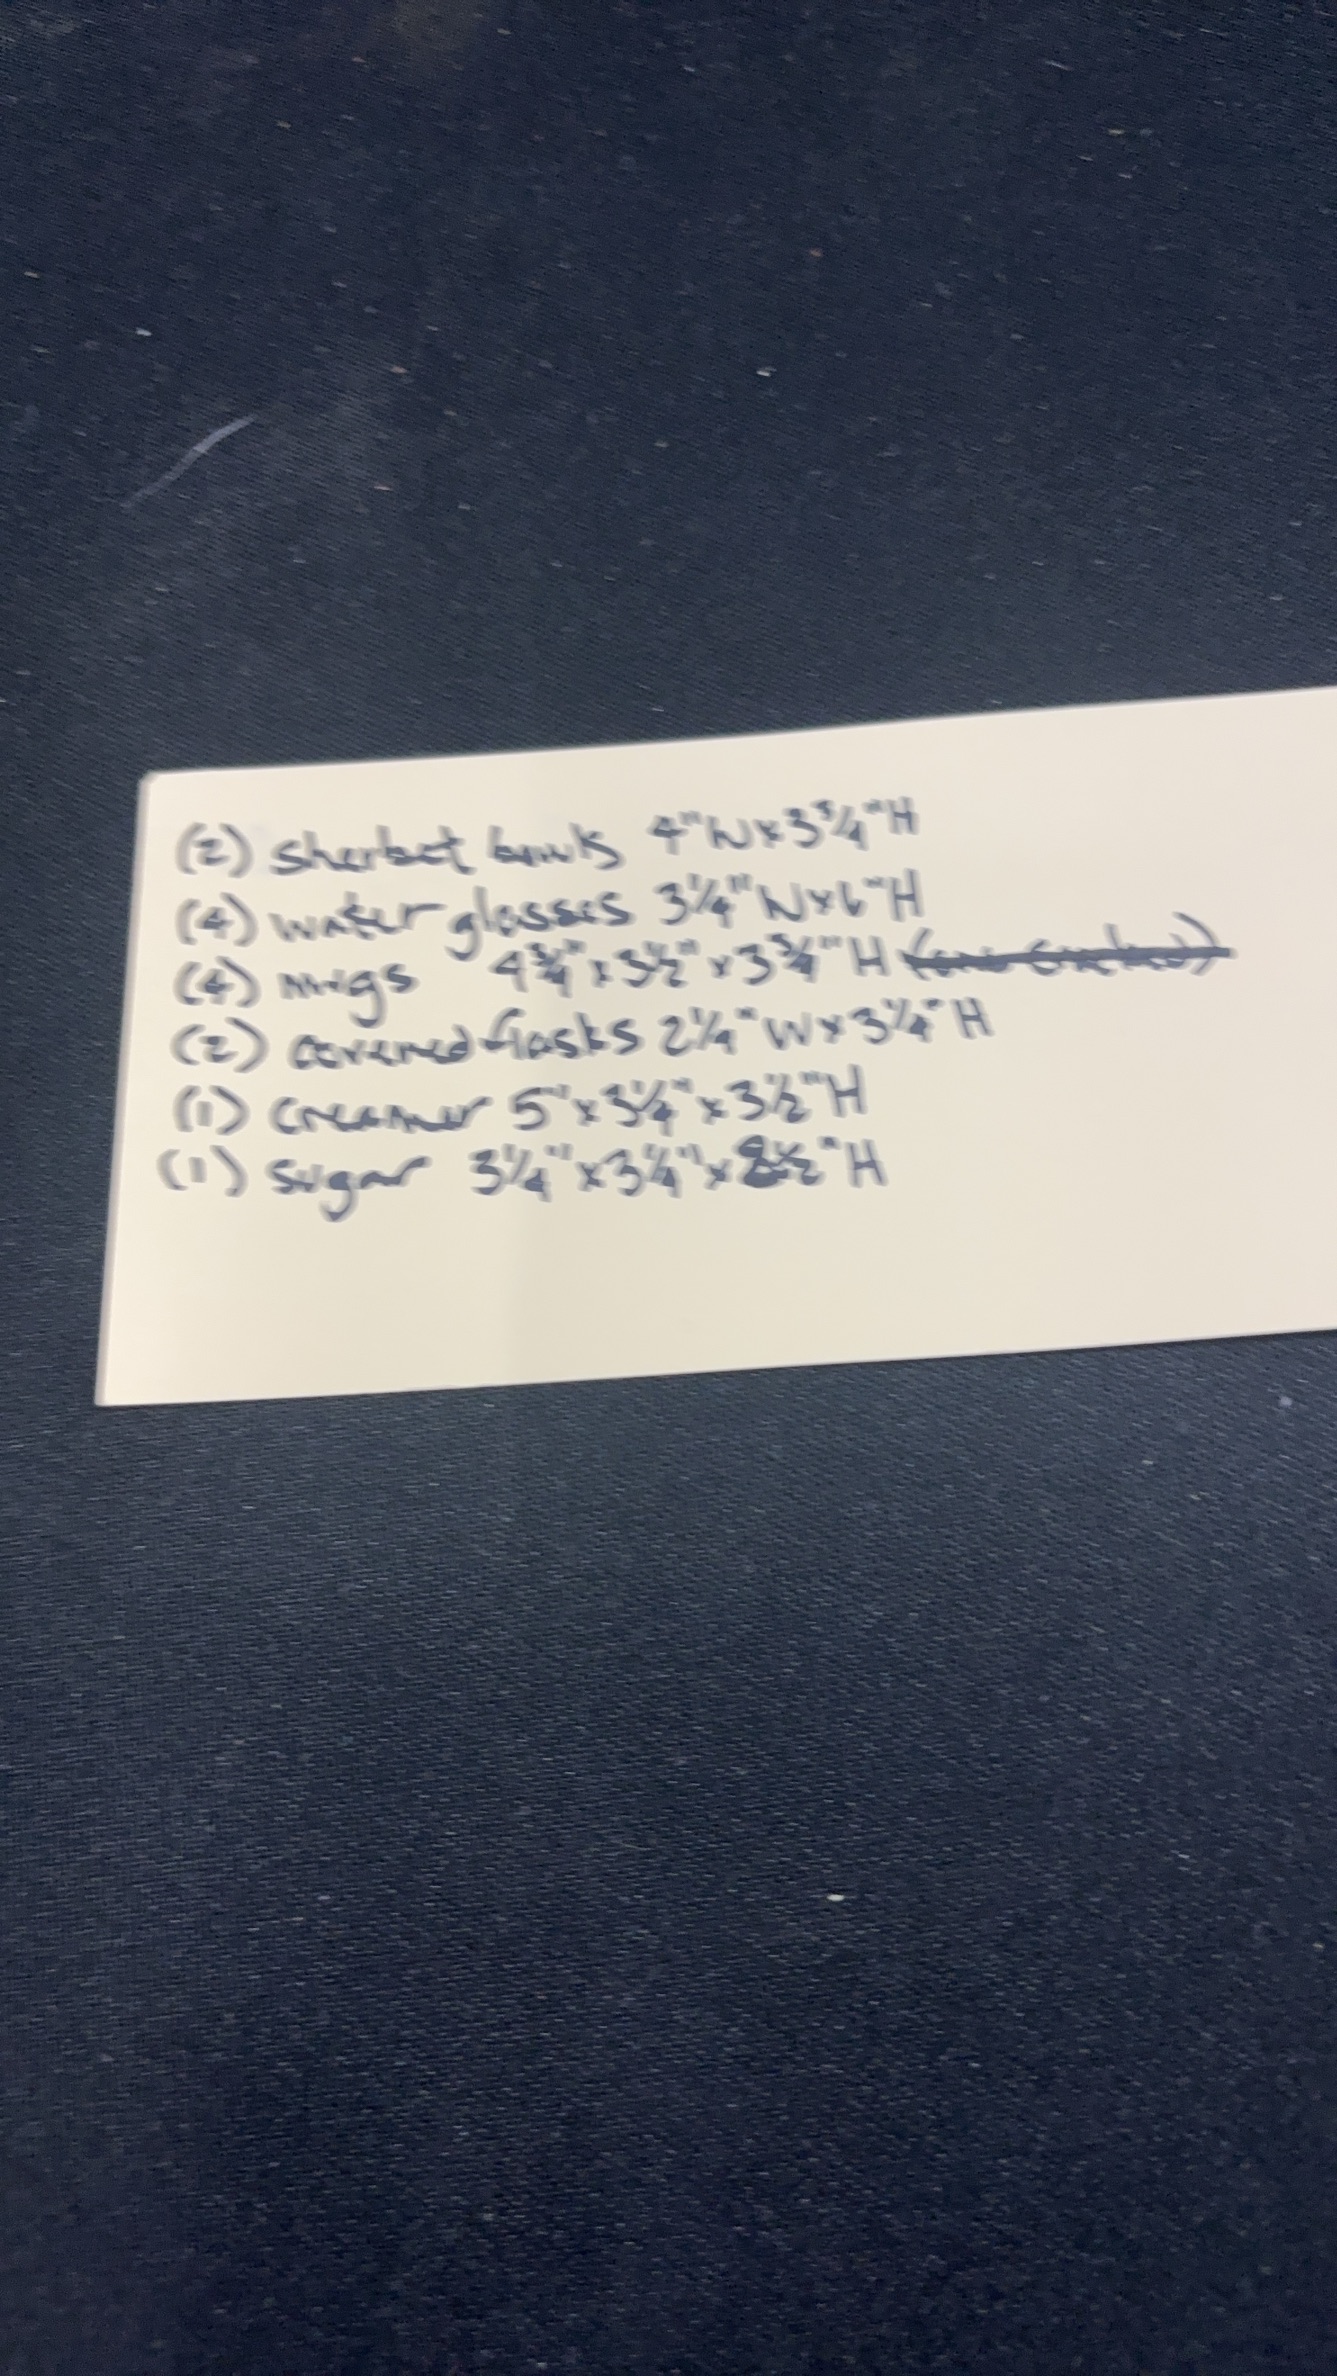 (2) Sherbet bowls 4"W x 3 3/4"H
(4) water glasses 3 1/4"W x 6"H
(4) mugs 4 3/4" x 3 1/2" x 3 3/4"H
(2) covered flasks 2 1/4"W x 3 1/4"H
(1) Creamer 5" x 3 1/4" x 3 1/2"H
(1) Sugar 3 1/4" x 3 1/4" x 2 1/2"H